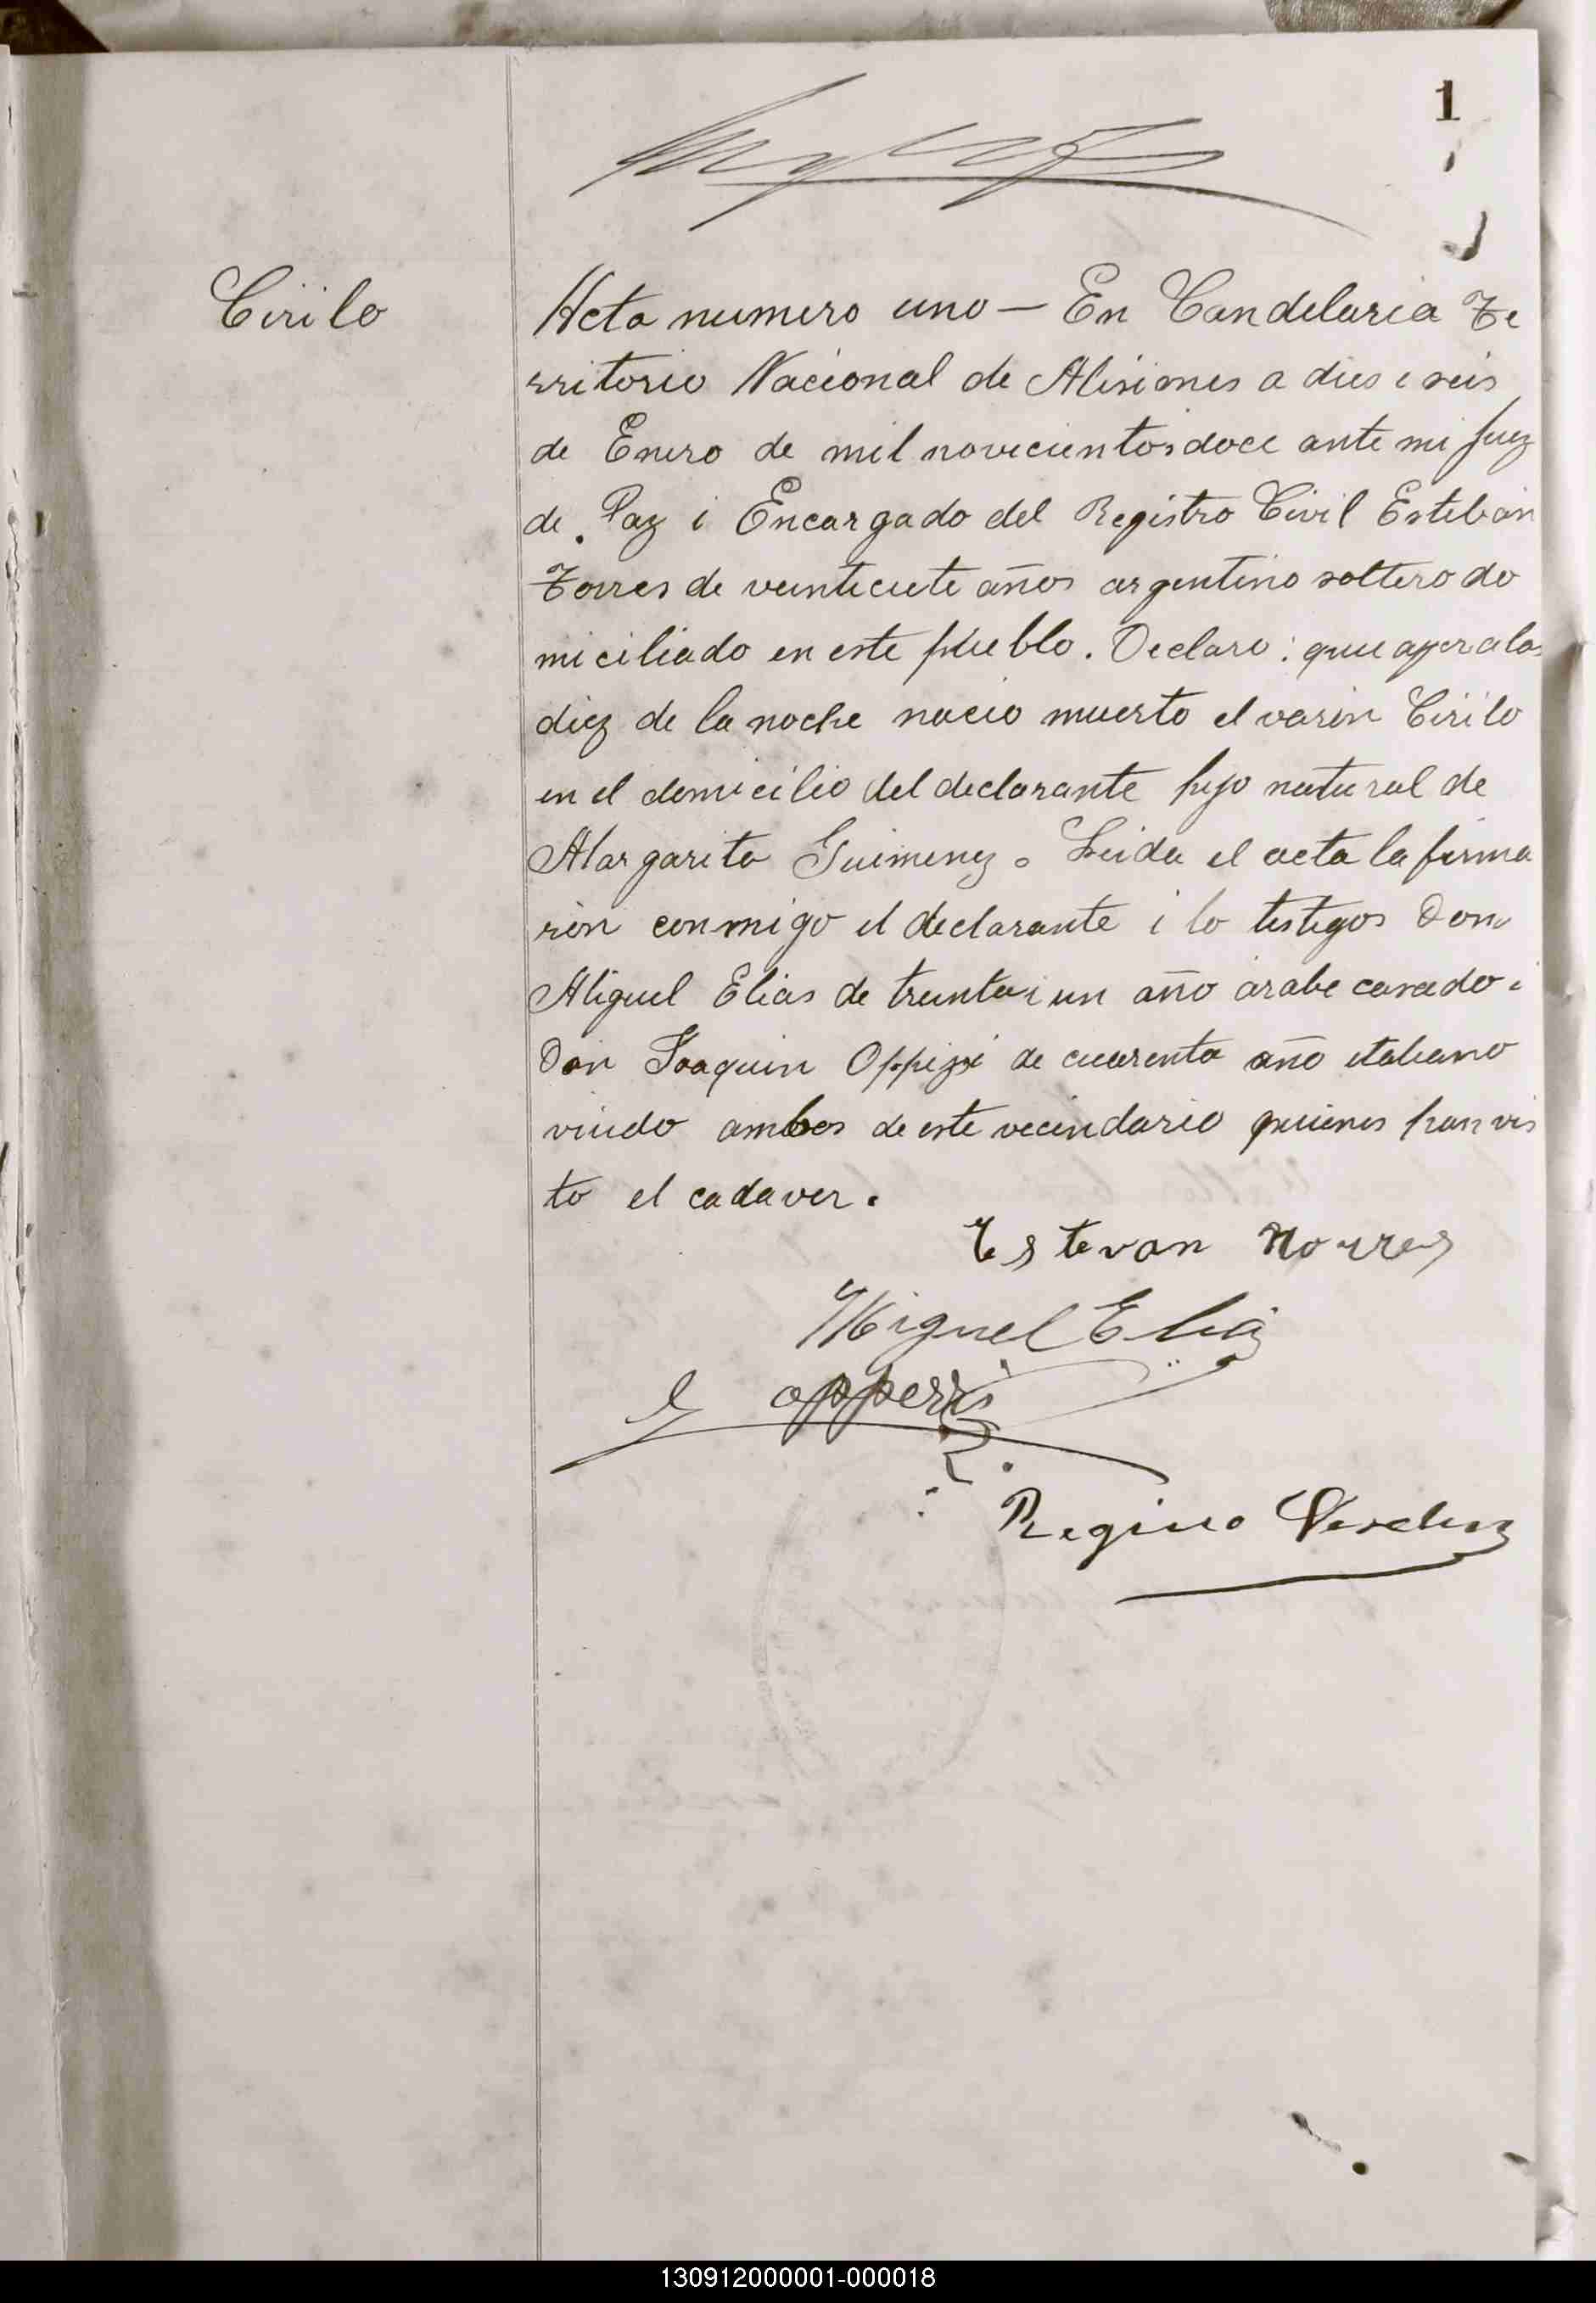 1
Cirilo
Acta numero uno — En Candelaria Te
rritorio Nacional de Misiones a dies i seis
de Enero de mil novecientos doce ante mi Juez
de Paz i Encargado del Registro Civil Esteban
Torres de veinteciete años argentino soltero do
miciliado en este pueblo. Declaro: que ayer a las
diez de la noche nacio muerto el varon Cirilo
en el domicilio del declarante hijo natural de
Margarita Guimenez. Leida el acta la firma
ron conmigo el declarante i lo testigos Don
Miguel Elias de treinta i un año arabe casado i
Don Joaquin Oppizi de cuarenta año italiano
viudo ambos de este vecindario quienes han vis
to el cadaver.
Estevan Torres
Miguel Elias
Regino
130912000001-000018